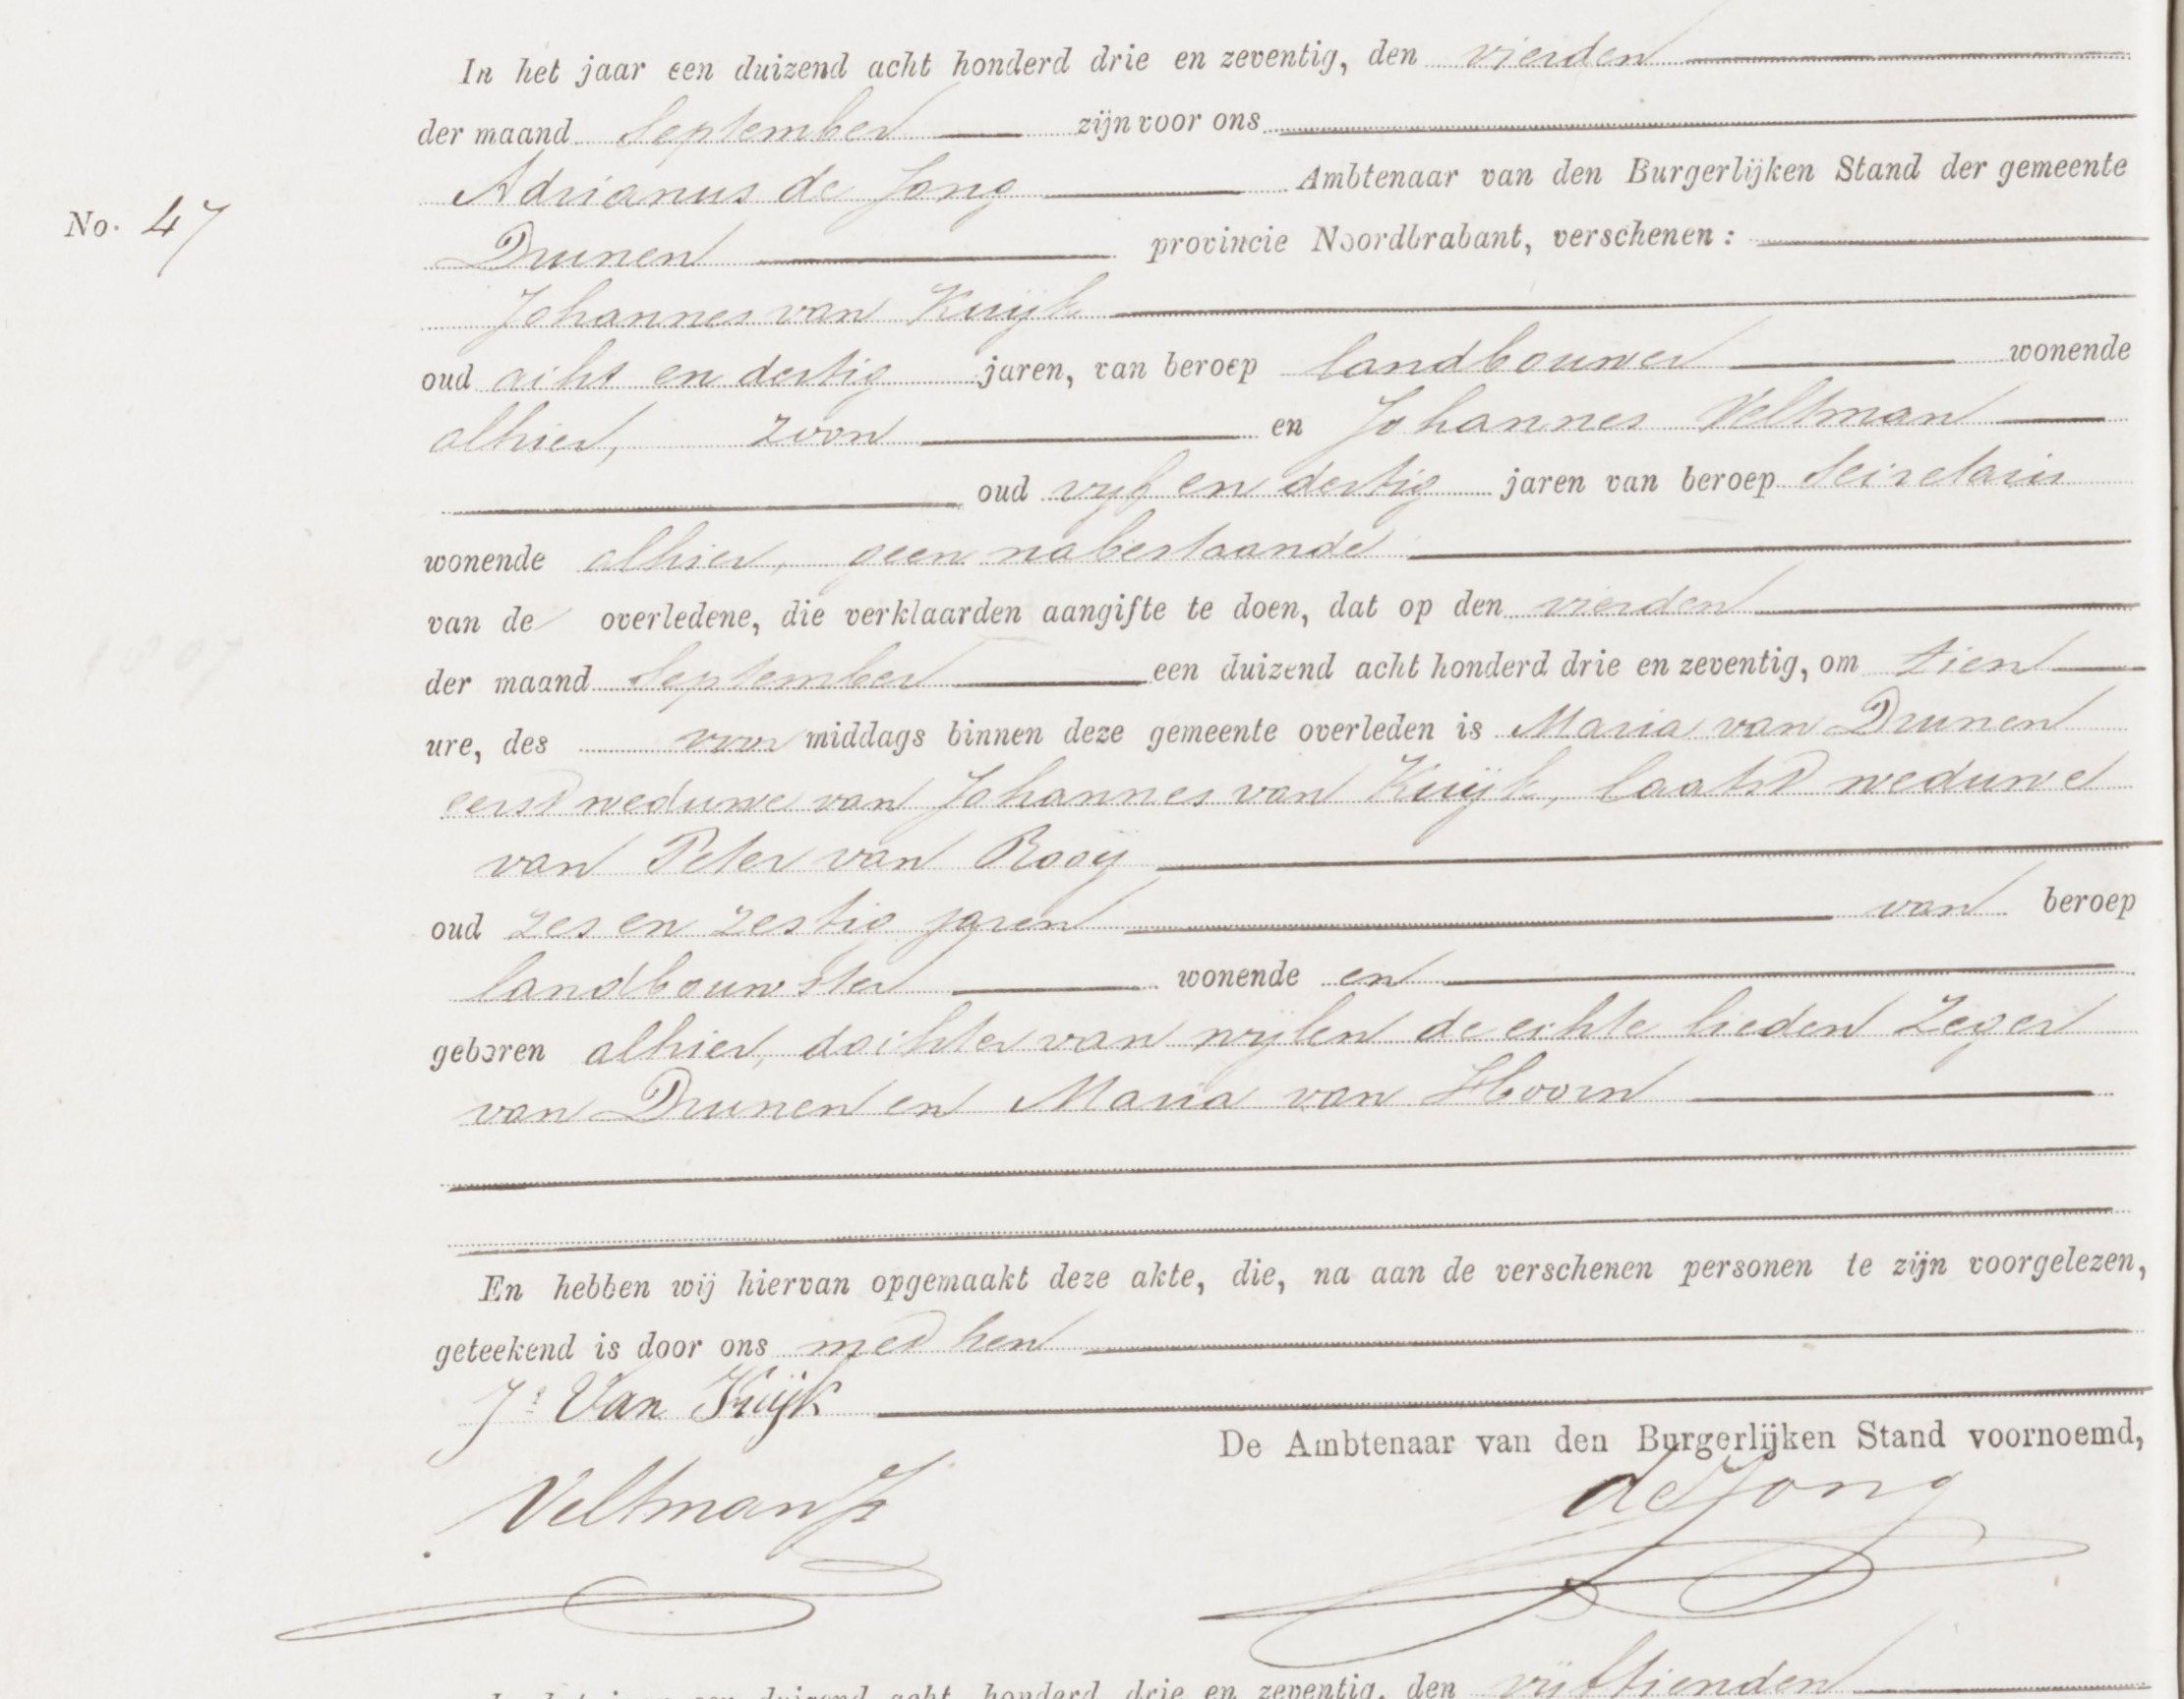 In het jaar een duizend acht honderd drie en zeventig, den vierden
der maand September zijn voor ons
Adrianus de Jong Ambtenaar van den Burgerlijken Stand der gemeente
No. 47
Drunen provincie Noordbrabant, verschenen:
Johannes van Kuijk
oud acht en dertig jaren, van beroep landbouwer wonende
alhier, zoon en Johannes Veltman
oud vijf en dertig jaren van beroep Secretaris
wonende alhier, geen nabestaande
van de overledene, die verklaarden aangifte te doen, dat op den vierden
der maand September een duizend acht honderd drie en zeventig, om tien
ure, des voor middags binnen deze gemeente overleden is Maria van Drunen
eerst weduwe van Johannes van Kuijk, laatst weduwe
van Peter van Rooij
oud zes en zestig jaren van beroep
landbouwster wonende en
geboren alhier, dochter van wijlen de echte lieden Zeger
van Drunen en Maria van Hoorn
En hebben wij hiervan opgemaakt deze akte, die, na aan de verschenen personen te zijn voorgelezen,
geteekend is door ons met hen
Js Van Kuijk
De Ambtenaar van den Burgerlijken Stand voornoemd,
Veltman
de Jong
duizend acht honderd drie en zeventig, den vijftienden